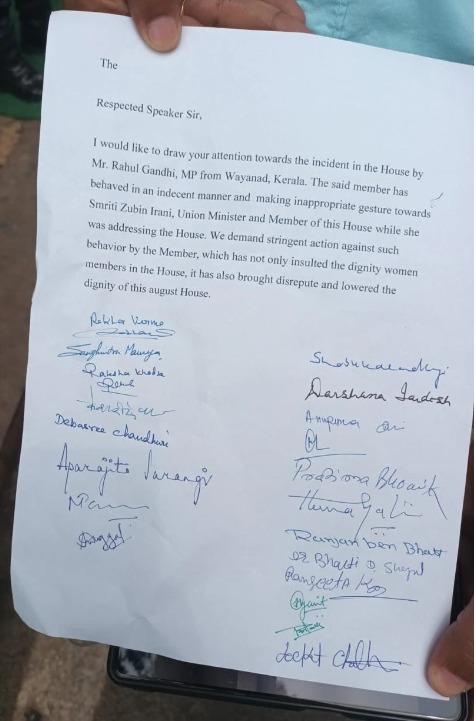 The
Respected Speaker Sir,
I would like to draw your attention towards the incident in the House by
Mr. Rahul Gandhi, MP from Wayanad, Kerala. The said member has
behaved in an indecent manner and making inappropriate gesture towards
Smriti Zubin Irani, Union Minister and Member of this House while she
was addressing the House. We demand stringent action against such
behavior by the Member, which has not only insulted the dignity women
members in the House, it has also brought disrepute and lowered the
dignity of this august House.
Sanghmitra Maurya
Raksha Khadse
Debasree Chaudhuri
Aparajita Sarangi
Darshana Jardosh
Pratima Bhoumik
Ranjanben Bhatt
Dr Bharti D. Shyal